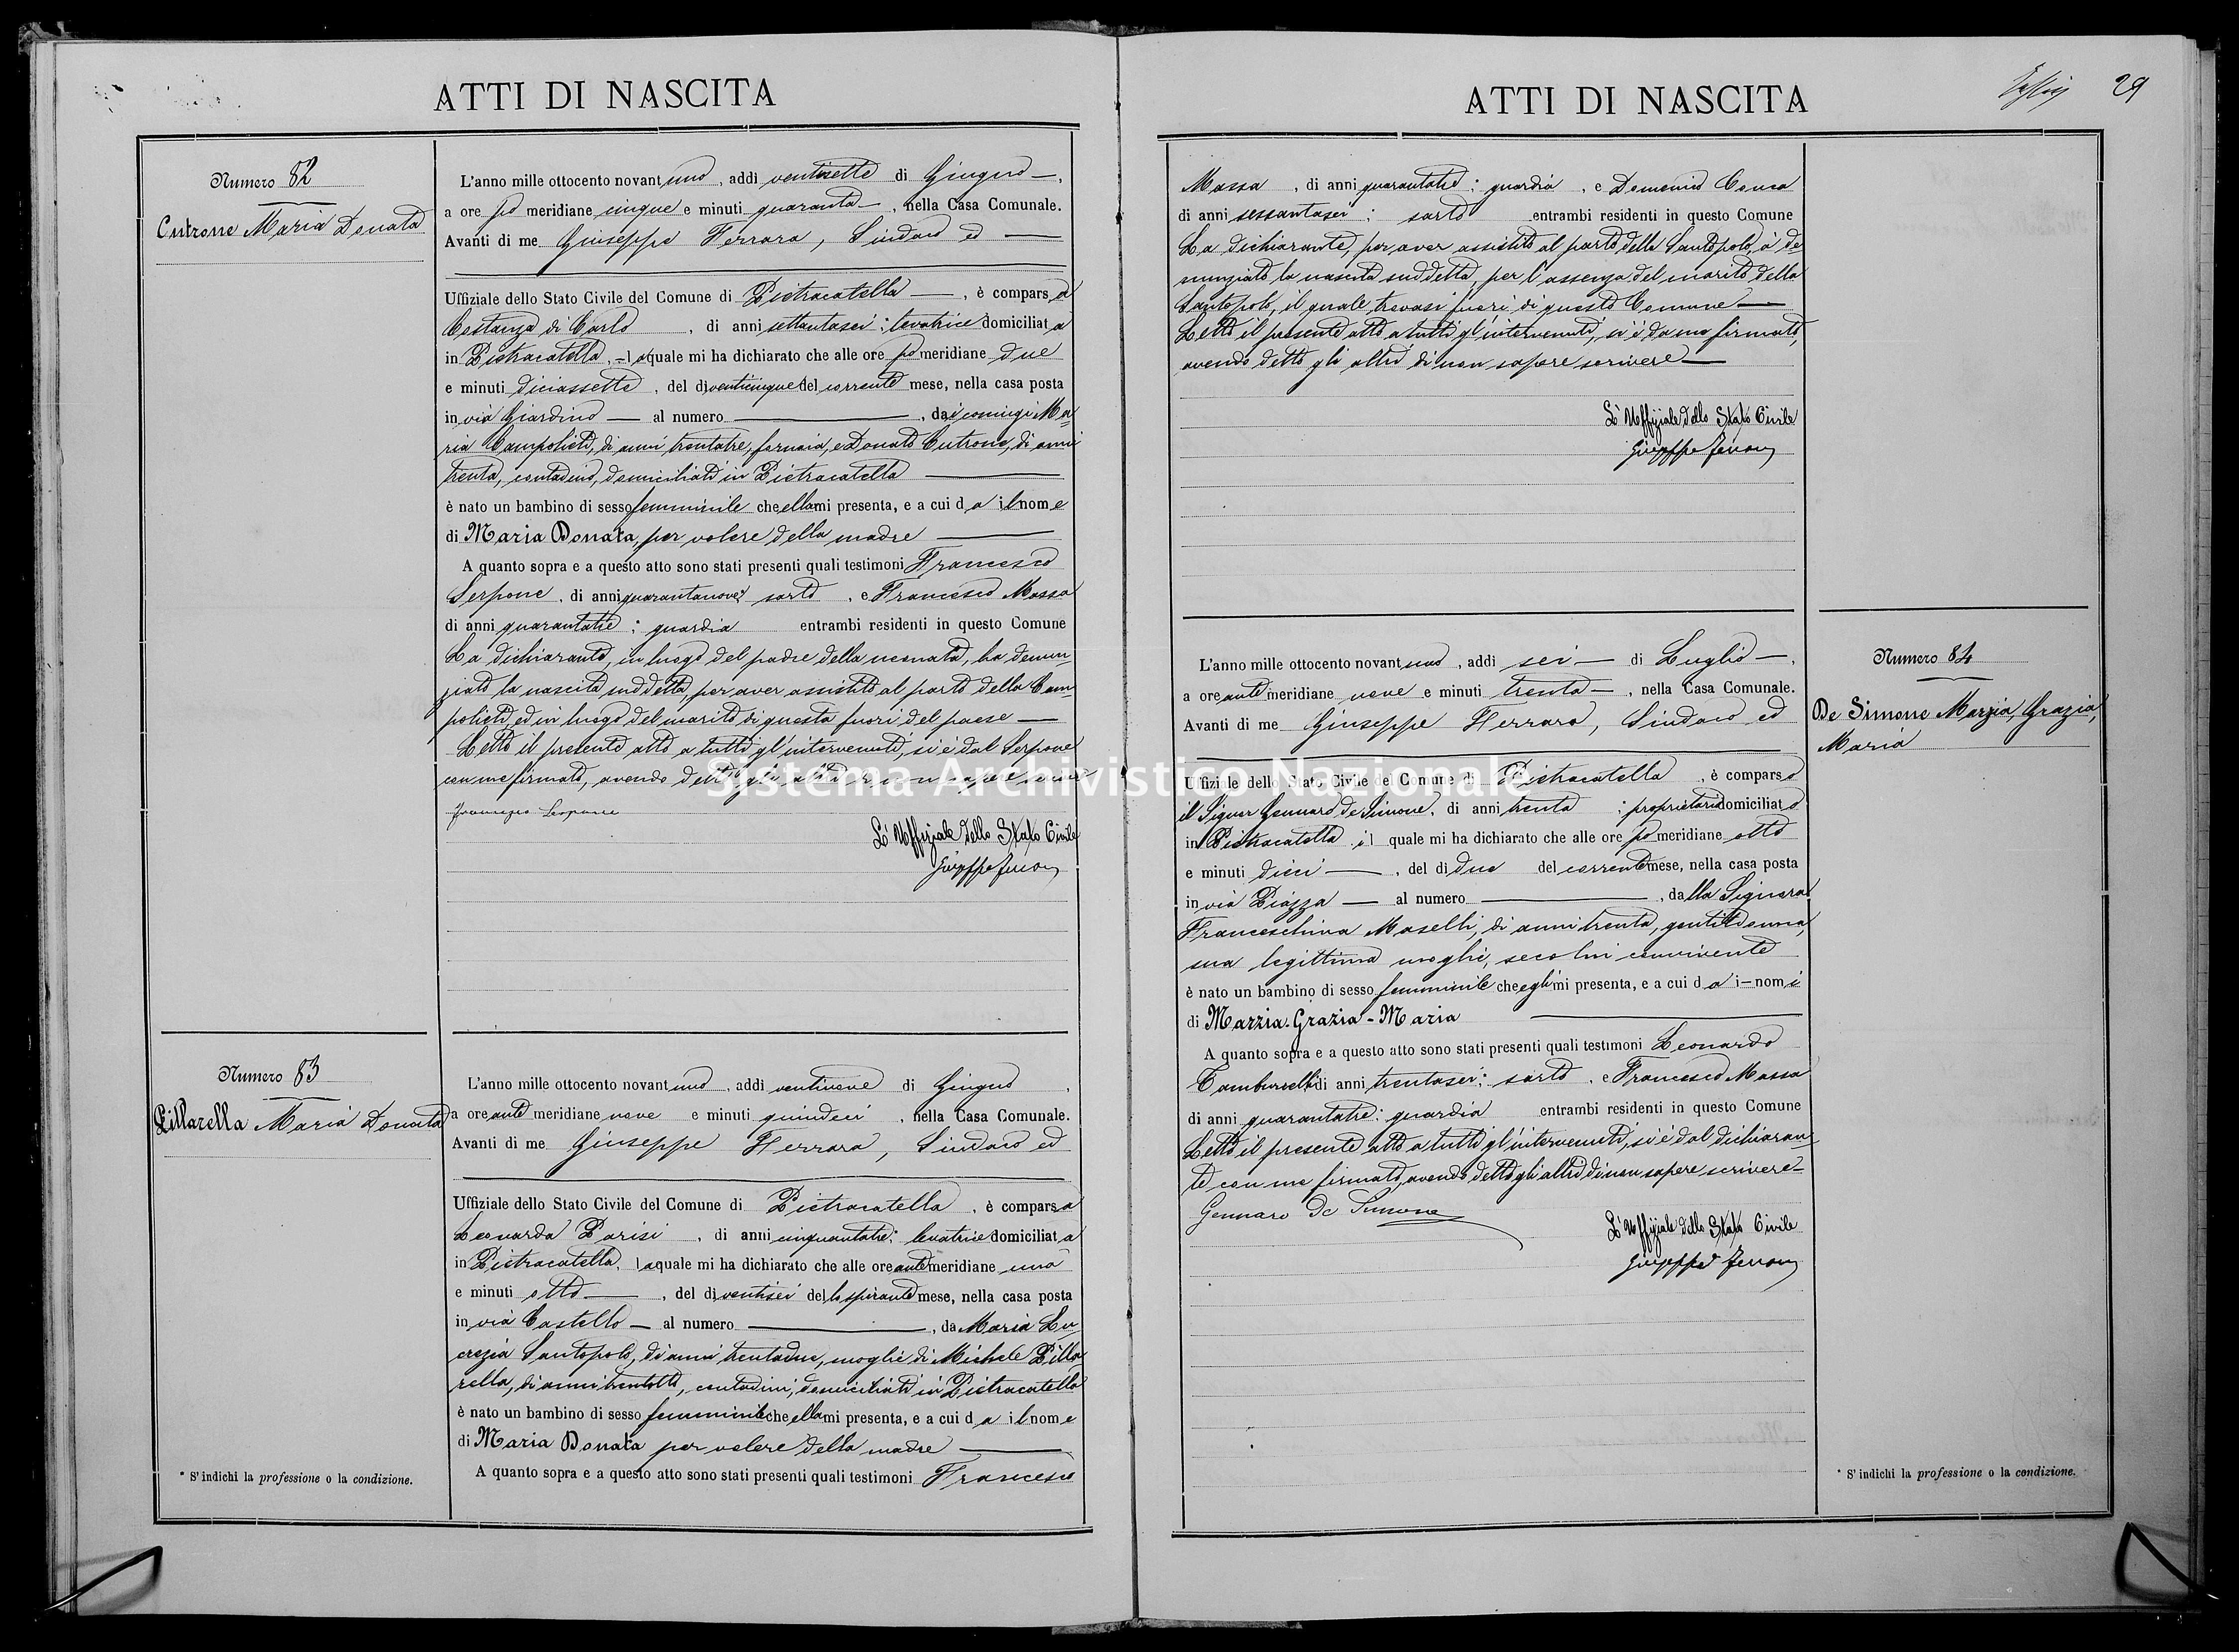 ATTI DI NASCITA
Numero 82
Cutrone Maria Donata
L'anno mille ottocento novantuno, addì ventisette di Giugno —,
a ore po meridiane cinque e minuti quaranta —, nella Casa Comunale.
Avanti di me Giuseppe Ferrara, Sindaco ed —
Uffiziale dello Stato Civile del Comune di Pietracatella —, è comparsa
Costanza di Carlo, di anni settantasei; levatrice domiciliata
in Pietracatella, — la quale mi ha dichiarato che alle ore po meridiane due
e minuti diciassette, del dì venticinque del corrente mese, nella casa posta
in via Giardino — al numero —, dai coniugi Ma-
ria Campolieti, di anni trentatre, fornaia, e Donato Cutrone, di anni
trenta, contadino, domiciliati in Pietracatella —
è nato un bambino di sesso femminile che ella mi presenta, e a cui dà il nome
di Maria Donata, per volere della madre —
A quanto sopra e a questo atto sono stati presenti quali testimoni Francesco
Serpone, di anni quarantanove; sarto, e Francesco Massa
di anni quarantatre; guardia entrambi residenti in questo Comune
La dichiarante, in luogo del padre della neonata, ha denun-
ziato la nascita suddetta, per aver assistito al parto della Cam-
polieti, ed in luogo del marito di questa fuori del paese —
Letto il presente atto a tutti gl'intervenuti, si è dal Serpone
con me firmato, avendo detto gli altri di non sapere scrivere
Francesco Serpone
L'Uffiziale dello Stato Civile
Giuseppe Ferrara
Numero 83
Pillarella Maria Donata
L'anno mille ottocento novantuno, addì ventinove di Giugno,
a ore ante meridiane nove e minuti quindici, nella Casa Comunale.
Avanti di me Giuseppe Ferrara, Sindaco ed
Uffiziale dello Stato Civile del Comune di Pietracatella, è comparsa
Leonarda Parisi, di anni cinquantatre; levatrice domiciliata
in Pietracatella, la quale mi ha dichiarato che alle ore ante meridiane una
e minuti otto —, del dì ventisei dello spirante mese, nella casa posta
in via Castello — al numero —, da Maria Lu-
crezia Santopolo, di anni trentadue, moglie di Michele Pilla-
rella, di anni trentotto, contadini, domiciliati in Pietracatella
è nato un bambino di sesso femminile che ella mi presenta, e a cui dà il nome
di Maria Donata per volere della madre —
A quanto sopra e a questo atto sono stati presenti quali testimoni Francesco
* S'indichi la professione o la condizione.
ATTI DI NASCITA
29
Massa, di anni quarantatre; guardia, e Domenico
di anni sessantasei; sarto entrambi residenti in questo Comune
La dichiarante, per aver assistito al parto della Santopolo, à de-
nunziato la nascita suddetta, per l'assenza del marito della
Santopolo, il quale trovasi fuori di questo Comune —
Letto il presente atto a tutti gl'intervenuti, si è da me firmato,
avendo detto gli altri di non sapere scrivere —
L'Uffiziale dello Stato Civile
Giuseppe Ferrara
Numero 84
De Simone Marzia, Grazia,
Maria
L'anno mille ottocento novantuno, addì sei — di Luglio —,
a ore ante meridiane nove e minuti trenta —, nella Casa Comunale.
Avanti di me Giuseppe Ferrara, Sindaco ed
Uffiziale dello Stato Civile del Comune di Pietracatella, è comparso
il Signor Gennaro de Simone, di anni trenta; proprietario domiciliato
in Pietracatella, il quale mi ha dichiarato che alle ore po meridiane otto
e minuti dieci —, del dì due del corrente mese, nella casa posta
in via Piazza — al numero —, dalla Signora
Franceschina Maselli, di anni trenta, gentildonna,
sua legittima moglie, seco lui convivente
è nato un bambino di sesso femminile che egli mi presenta, e a cui dà i — nomi
di Marzia - Grazia - Maria —
A quanto sopra e a questo atto sono stati presenti quali testimoni Leonardo
Tamburelli di anni trentasei; sarto, e Francesco Massa
di anni quarantatre; guardia entrambi residenti in questo Comune
Letto il presente atto a tutti gl'intervenuti, si è dal dichiaran-
te con me firmato, avendo detto gli altri di non sapere scrivere —
Gennaro De Simone
L'Uffiziale dello Stato Civile
Giuseppe Ferrara
* S'indichi la professione o la condizione.
Sistema Archivistico Nazionale